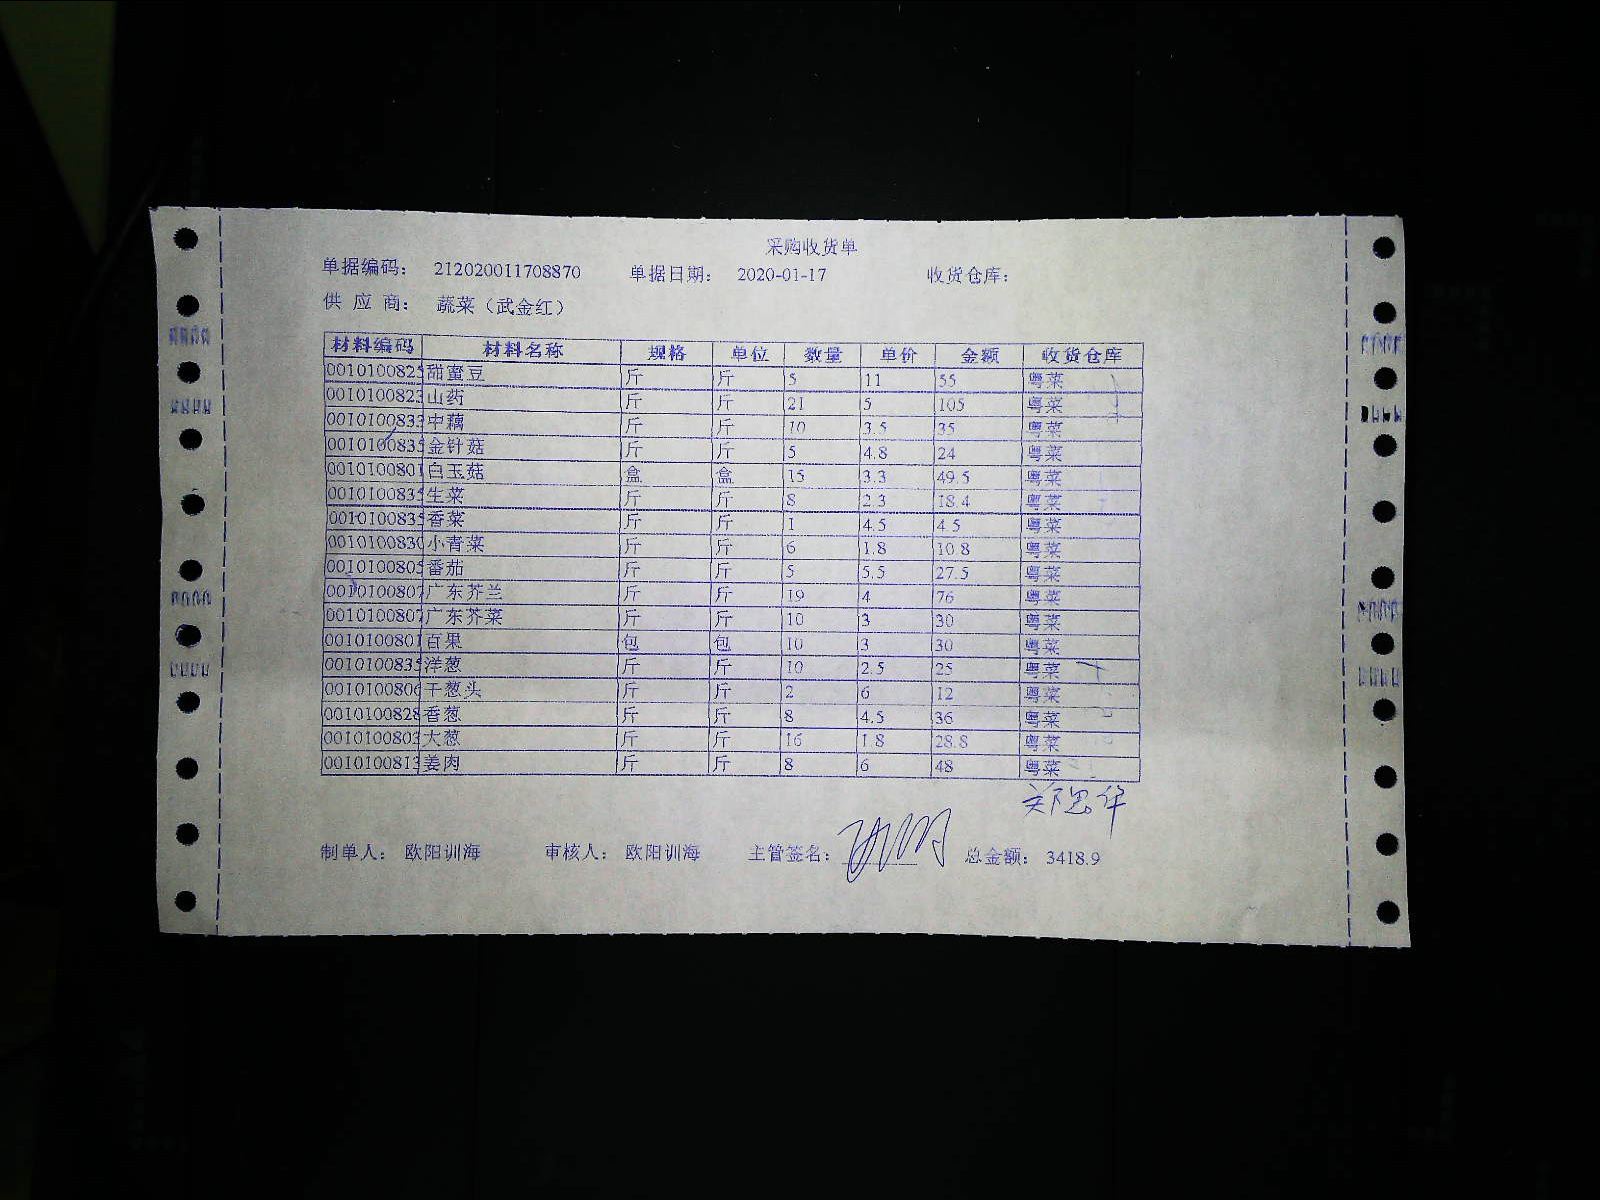 采购收货单
单据编码： 212020011708870 单据日期： 2020-01-17 收货仓库：
供 应 商： 蔬菜（武金红）
材料编码 材料名称 规格 单位 数量 单价 金额 收货仓库
0010100825 甜蜜豆 斤 斤 5 11 55 粤菜
0010100823 山药 斤 斤 21 5 105 粤菜
0010100833 中藕 斤 斤 10 3.5 35 粤菜
0010100835 金针菇 斤 斤 5 4.8 24 粤菜
0010100801 白玉菇 盒 盒 15 3.3 49.5 粤菜
0010100835 生菜 斤 斤 8 2.3 18.4 粤菜
0010100835 香菜 斤 斤 1 4.5 4.5 粤菜
0010100830 小青菜 斤 斤 6 1.8 10.8 粤菜
0010100805 番茄 斤 斤 5 5.5 27.5 粤菜
0010100807 广东芥兰 斤 斤 19 4 76 粤菜
0010100807 广东芥菜 斤 斤 10 3 30 粤菜
0010100801 百果 包 包 10 3 30 粤菜
0010100835 洋葱 斤 斤 10 2.5 25 粤菜
0010100806 干葱头 斤 斤 2 6 12 粤菜
0010100828 香葱 斤 斤 8 4.5 36 粤菜
0010100803 大葱 斤 斤 16 1.8 28.8 粤菜
0010100813 姜肉 斤 斤 8 6 48 粤菜
郑思华
制单人： 欧阳训海 审核人： 欧阳训海 主管签名： 总金额： 3418.9